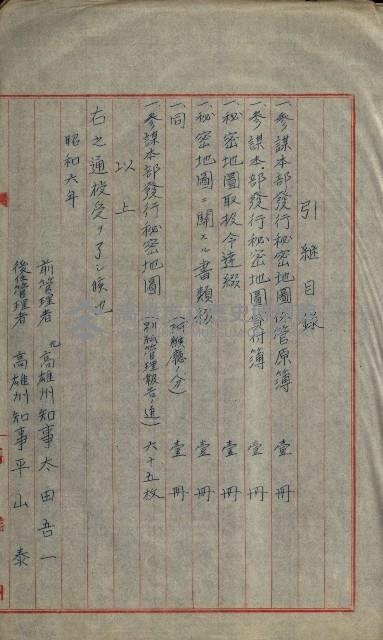 引継目錄
一、參謀本部發行秘密地圖保管原簿 壹冊
一、參謀本部發行秘密地圖貸付簿 壹冊
一、秘密地圖取扱令達綴 壹冊
一、秘密地圖ニ關スル書類綴 壹冊
一、同 (阿緱廳ノ分) 壹冊
一、參謀本部發行秘密地圖 (別紙管理報告ノ通) 六十五枚
以上
右之通授受ヲ了シ候也
昭和六年
前管理者 元高雄州知事 太田吾一
後任管理者 高雄州知事 平山泰